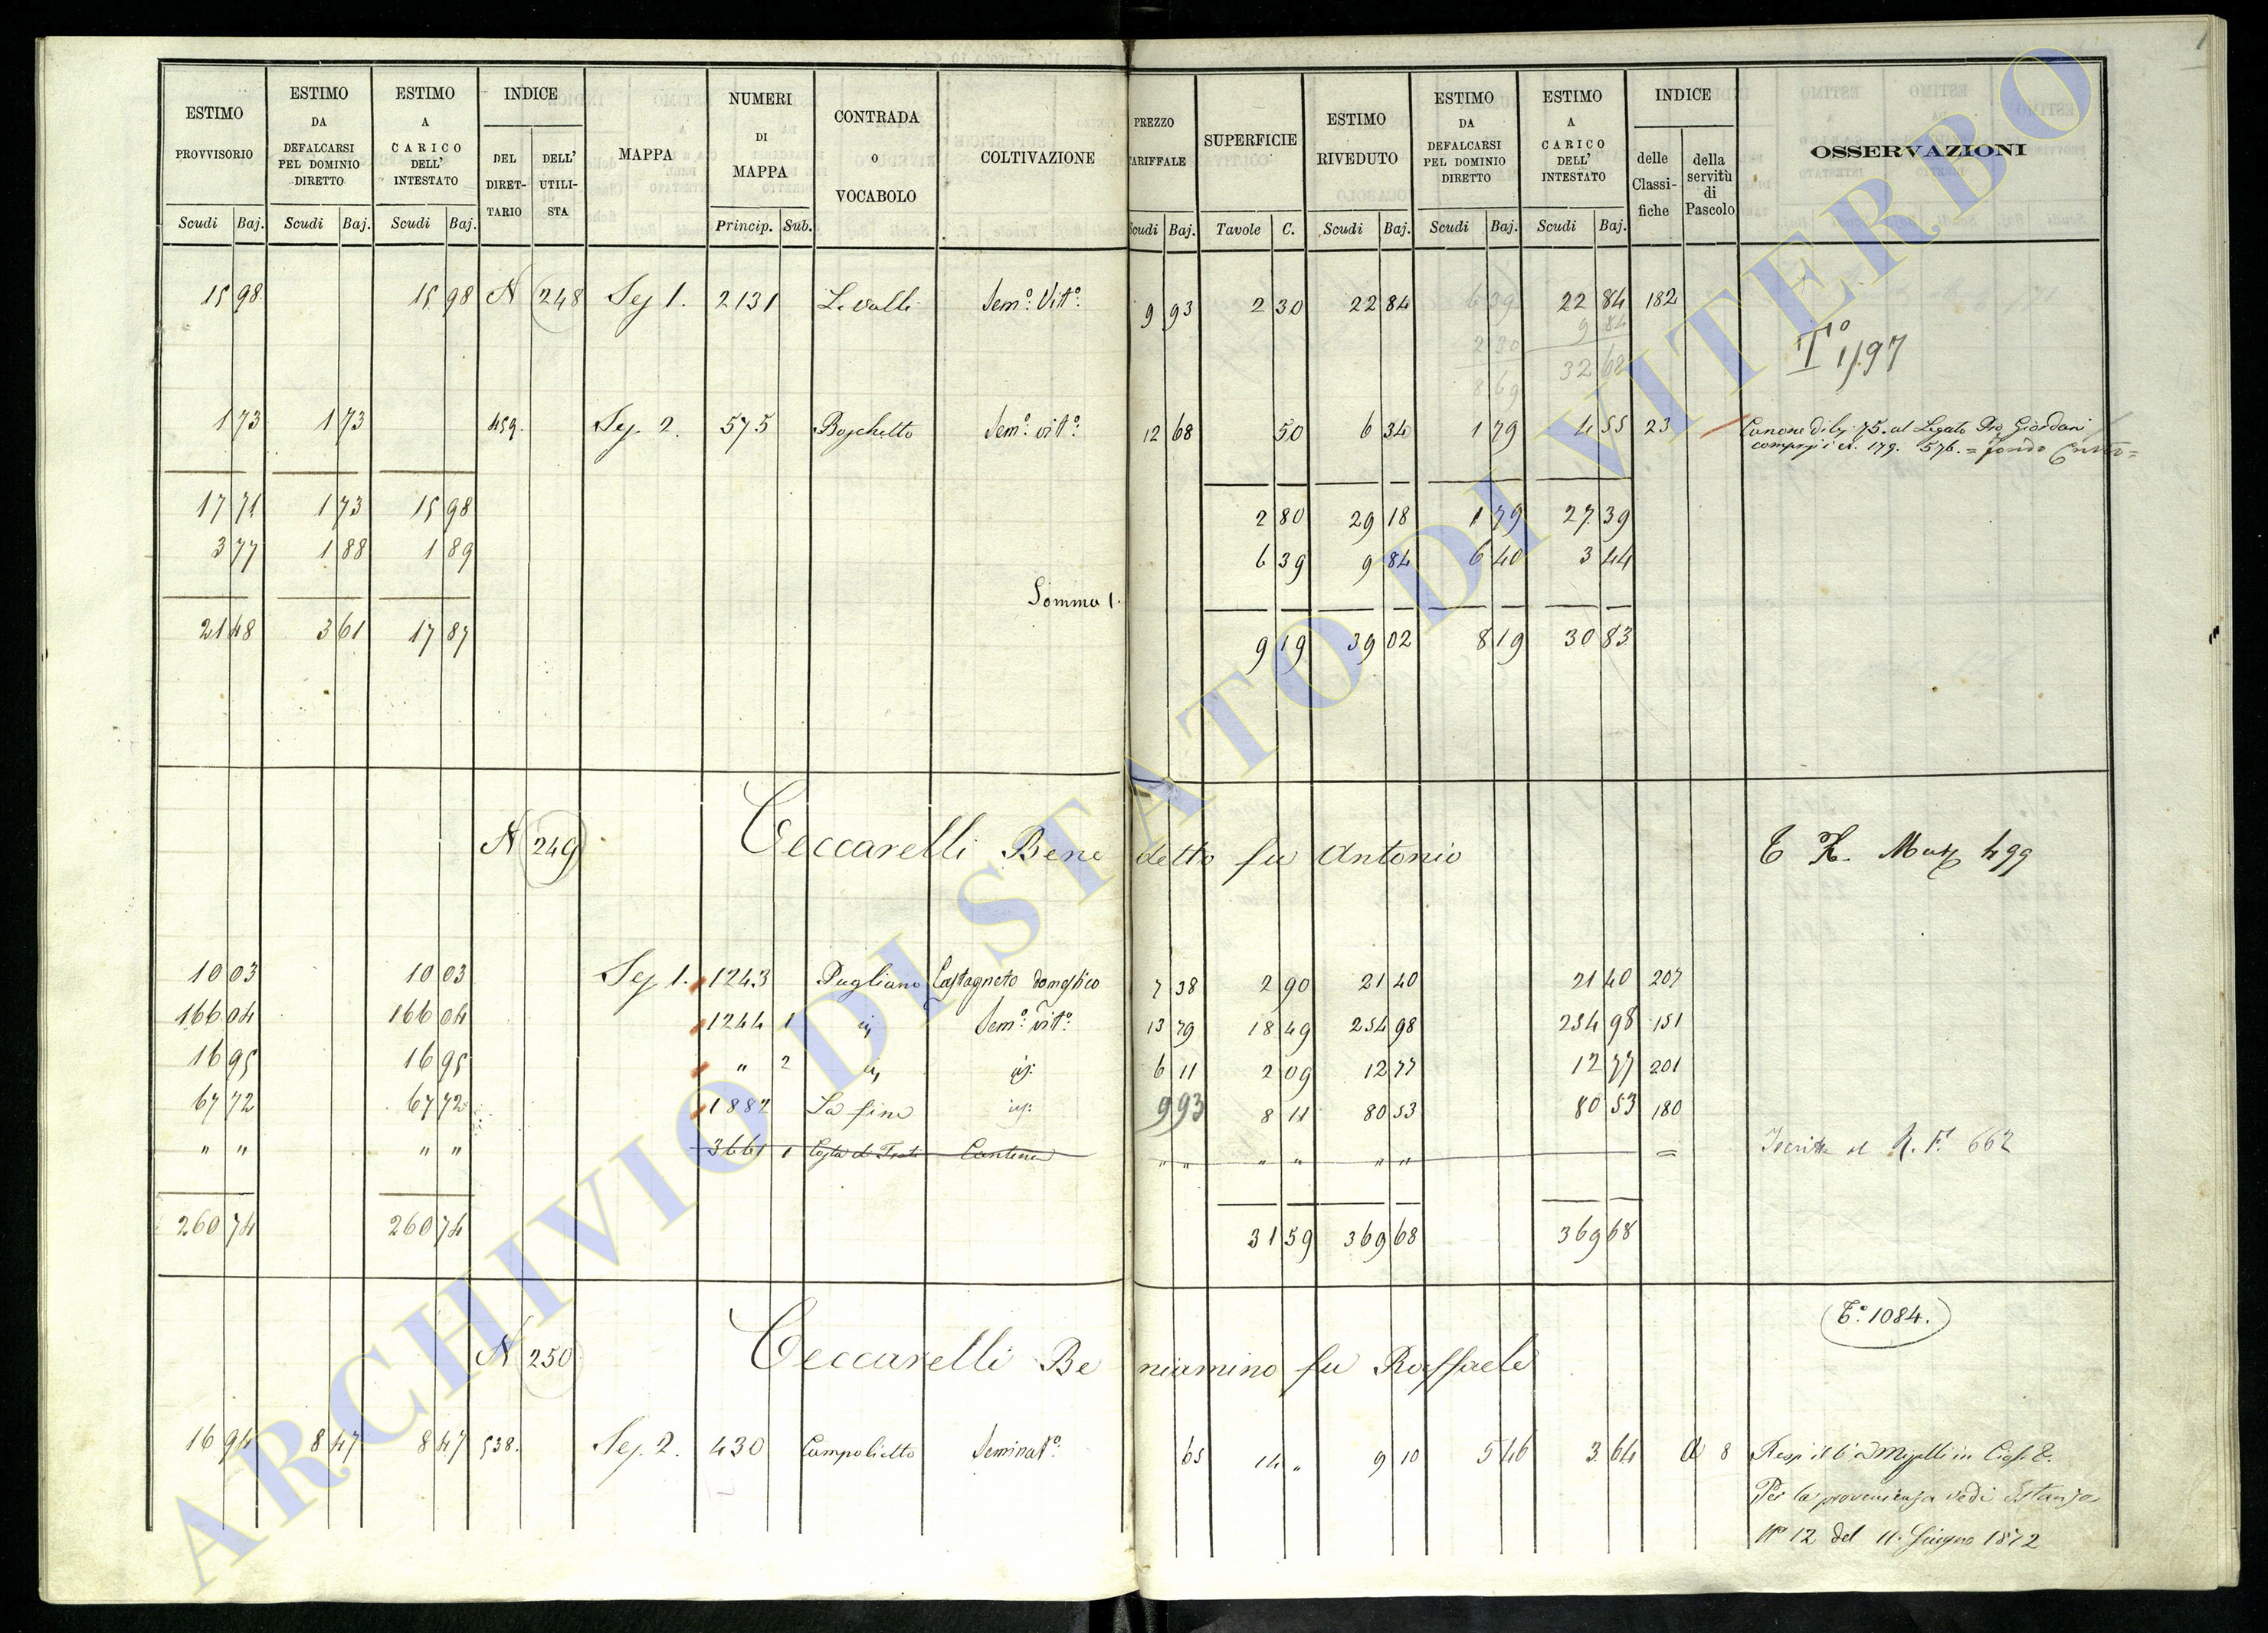 ESTIMO PROVVISORIO | ESTIMO DA DEFALCARSI PEL DOMINIO DIRETTO | ESTIMO A CARICO DELL' INTESTATO | INDICE | MAPPA | NUMERI DI MAPPA | CONTRADA o VOCABOLO | COLTIVAZIONE | PREZZO TARIFFALE | SUPERFICIE | ESTIMO RIVEDUTO | ESTIMO DA DEFALCARSI PEL DOMINIO DIRETTO | ESTIMO A CARICO DELL' INTESTATO | INDICE | OSSERVAZIONI
DEL DIRET-TARIO | DELL' UTILI-STA | delle Classi-fiche | della servitù di Pascolo
Scudi Baj. | Scudi Baj. | Scudi Baj. | Princip. Sub. | Scudi Baj. | Tavole C. | Scudi Baj. | Scudi Baj. | Scudi Baj.
15 98 | 15 98 | N 248 | Sez 1. | 2131 | Le valli | Sem.º Vit.º | 9 93 | 2 30 | 22 84 | 6 39 | 22 84 | 182
9 84
2 30 | 32 68 | Tº 1197
8 69
1 73 | 1 73 | 459. | Sez. 2. | 575 | Boschetto | Sem.º vit.º | 12 68 | 50 | 6 34 | 1 79 | 4 55 | 23 | Canone di bj. 75. al Legato Pio Giordani
compresi i n. 179. 576. = fondo
17 71 | 1 73 | 15 98 | 2 80 | 29 18 | 1 79 | 27 39
3 77 | 1 88 | 1 89 | 6 39 | 9 84 | 6 40 | 3 44
Somma
21 48 | 3 61 | 17 87 | 9 19 | 39 02 | 8 19 | 30 83
N 249 | Ceccarelli Benedetto fu Antonio | 499
10 03 | 10 03 | Sez 1. | 1243 | Pugliano | Castagneto domestico | 7 38 | 2 90 | 21 40 | 21 40 | 207
166 04 | 166 04 | 1244 1 | id | Sem.º vit.º | 13 79 | 18 49 | 254 98 | 254 98 | 151
16 95 | 16 95 | " 2 | id | id: | 6 11 | 2 09 | 12 77 | 12 77 | 201
67 72 | 67 72 | 1882 | La fine | id: | 9 93 | 8 11 | 80 53 | 80 53 | 180
" " | " " | 3661 1 | Cantina | " " | " " | " " | = | Iscritta al R. F. 662
260 74 | 260 74 | 31 59 | 369 68 | 369 68
T.º 1084.
N 250 | Ceccarelli Beniamino fu Raffaele
16 94 | 8 47 | 8 47 | 538. | Sez. 2. | 430 | Campolietto | Seminat.º | 65 | 14 " | 9 10 | 5 46 | 3 64 | A 8
Per la provenienza vedi Istanza
Nº 12 del 11. Giugno 1872
ARCHIVIO DI STATO DI VITERBO